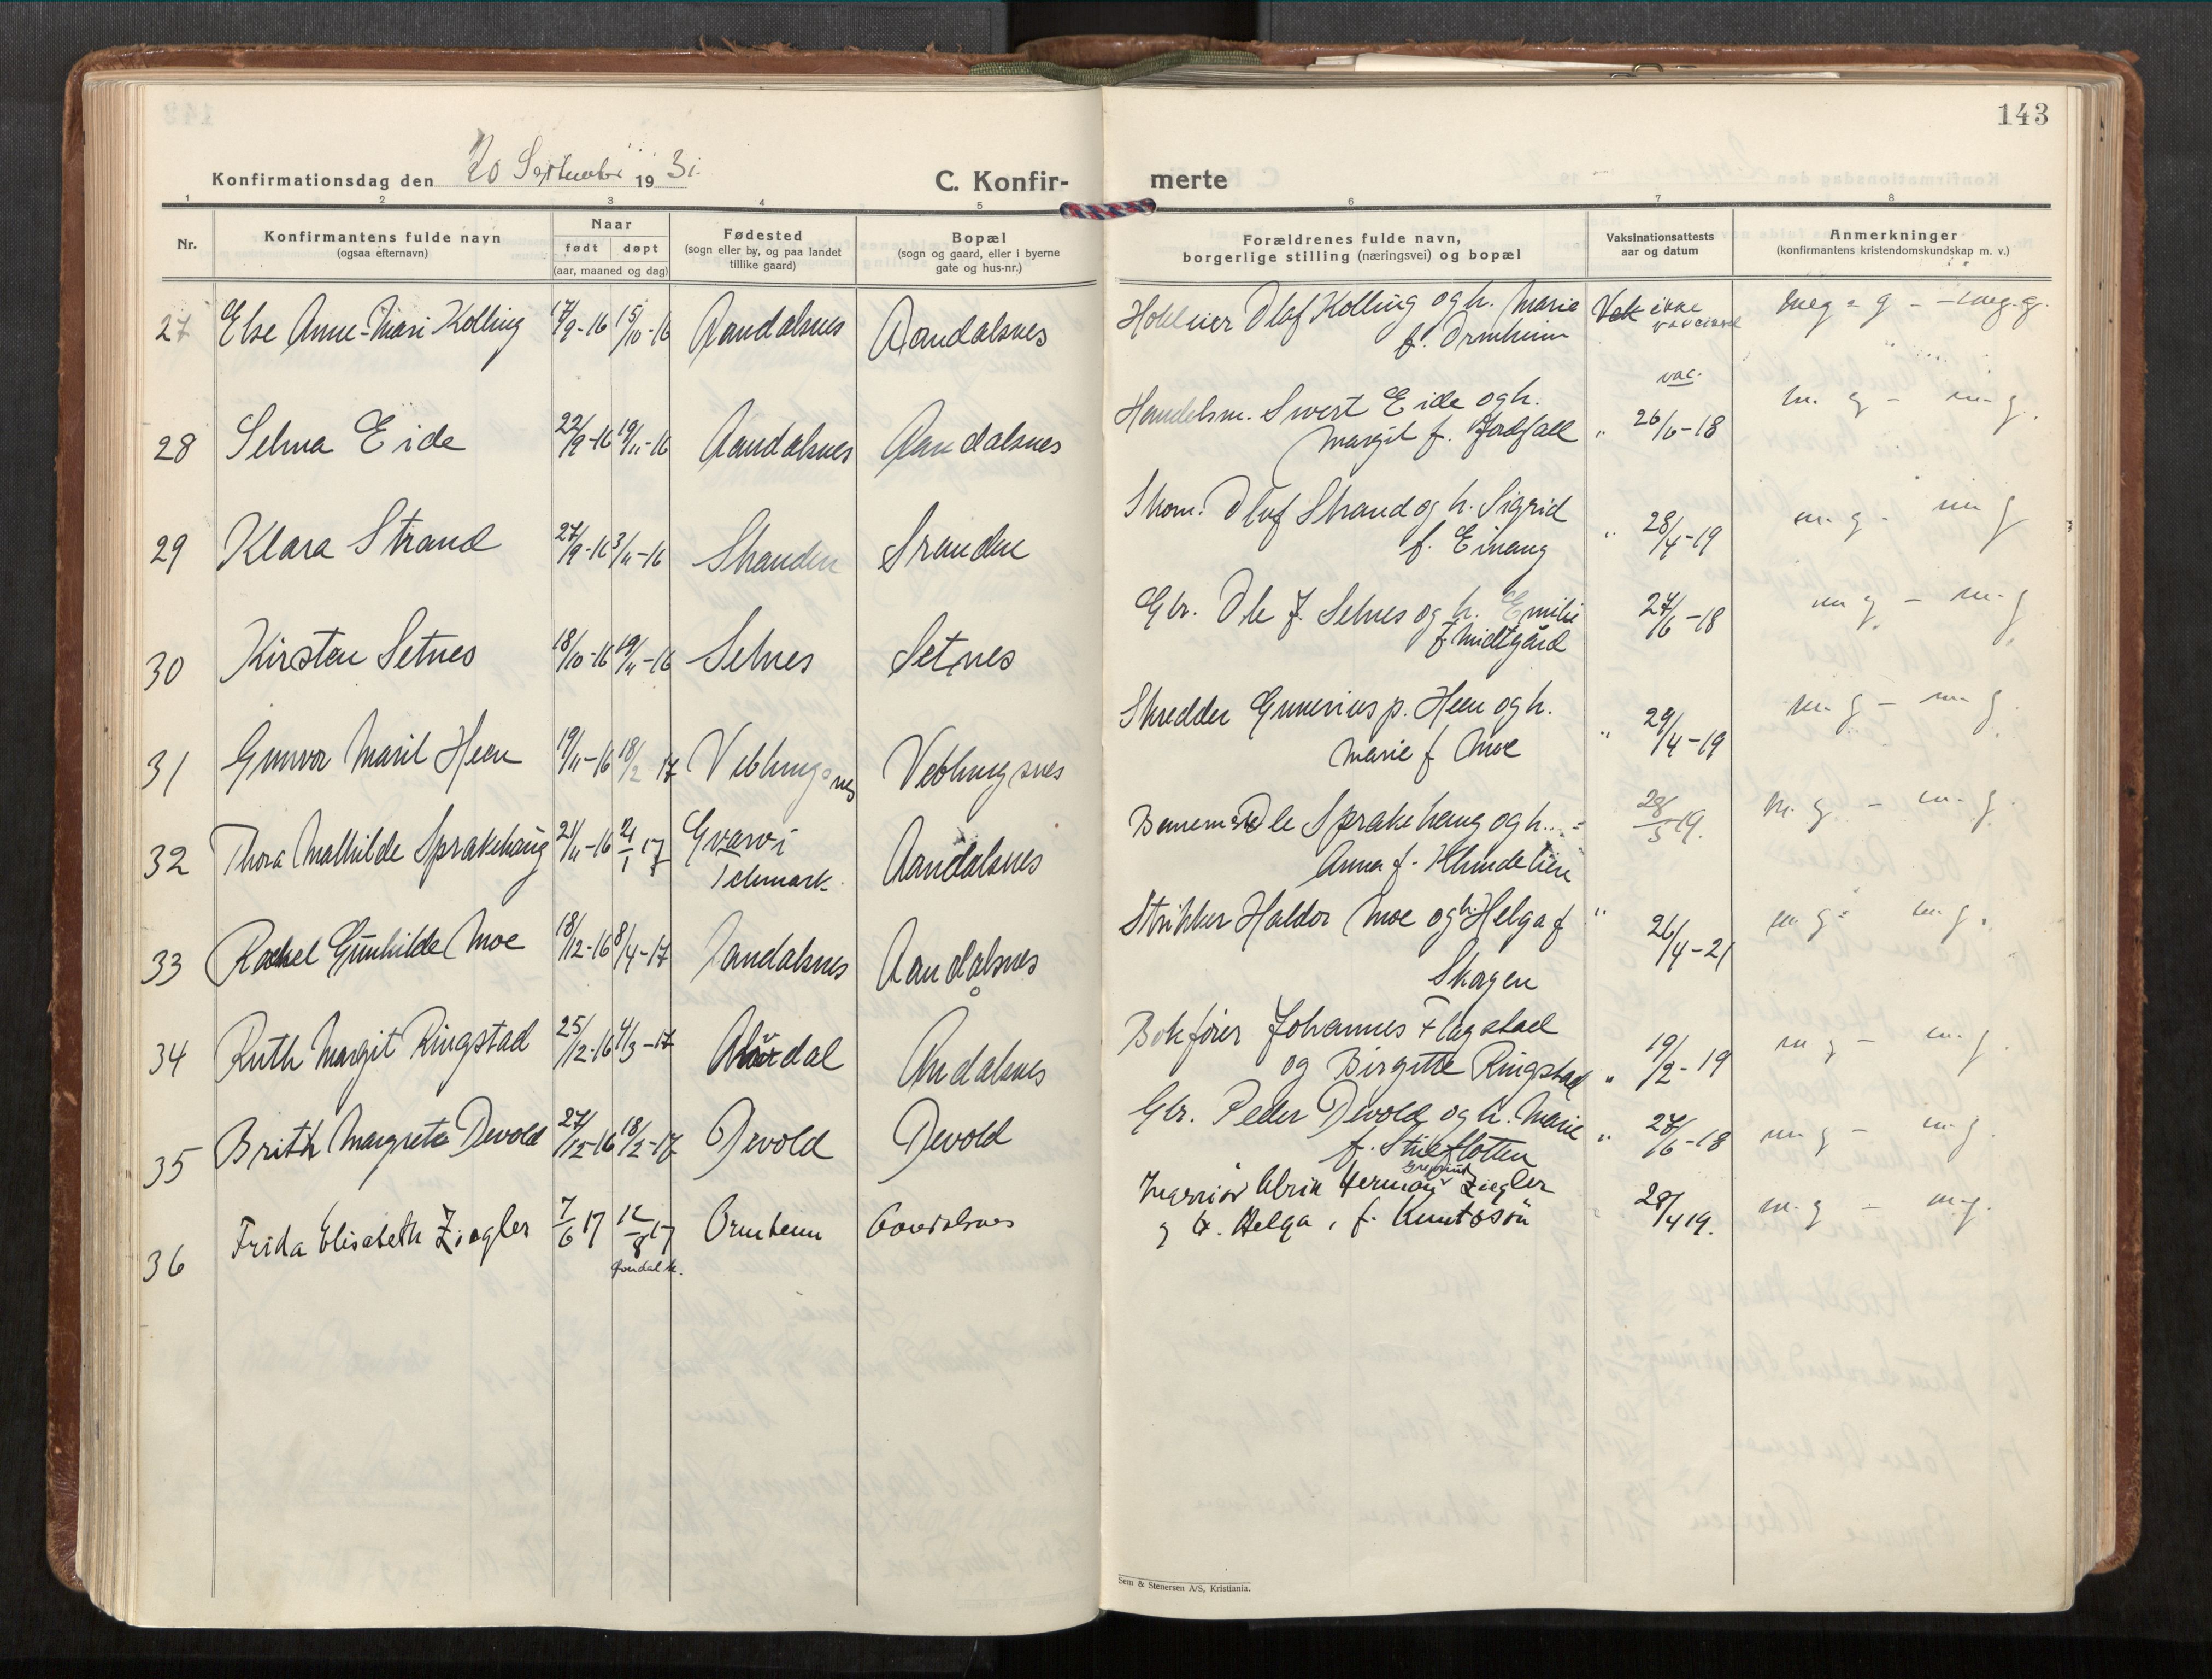 143
Konfirmationsdag den 20 September 1931.
C. Konfirmerte
1 2 3 4 5 6 7 8
Nr.
Konfirmantens fulde navn
(ogsaa efternavn)
Naar
født døpt
(aar, maaned og dag)
Fødested
(sogn eller by, og paa landet
tillike gaard)
Bopæl
(sogn og gaard, eller i byerne
gate og hus-nr.)
Forældrenes fulde navn,
borgerlige stilling (næringsvei) og bopæl
Vaksinationsattests
aar og datum
Anmerkninger
(konfirmantens kristendomskundskap m. v.)
27 Else Anne-Mari Kolling 17/9-16 15/10-16 Aandalsnes Aandalsnes Hoteleier Olaf Kolling og h. Marie Vak ikke meg. g - meg. g.
f. Ormheim
vac.
28 Selma Eide 22/9-16 19/11-16 Aandalsnes Aandalsnes Handelsm. Sivert Eide og h. " 26/6-18 m. g - m. g.
Margit f. Jordfall
29 Klara Strand 27/9-16 3/11-16 Stranden Stranden Skom. Oluf Strand og h. Sigrid " 28/4-19 m. g - m g
f. Einang
30 Kirsten Setnes 18/10-16 19/11-16 Setnes Setnes Gbr. Ole J. Setnes og h. Emilie 27/6-18 m g. - m. g.
f. Midtgård
31 Gunvor Marit Heen 19/11-16 18/2 17 Veblungsnes Veblungsnes Skredder Gunerius P. Heen og h. " 29/4-19 m. g - m. g.
Marie f Moe
32 Thora Mathilde Sprakehaug 21/11-16 21/1 17 Gvarv i Aandalsnes Banem. Ole Sprakehaug og h. 28/5 19. m. g - m. g.
Telemark. Anna f.
33 Rachel Gunhilde Moe 18/12-16 8/4-17 Aandalsnes Aandalsnes Strikker Haldor Moe og h. Helga f " 26/4-21 m. g - m. g.
Skogen
34 Ruth Margit Ringstad 25/12-16 4/3-17 Andalsnes Bokfører Johannes Flagstad 19/2-19 m g - m. g.
og Birgitte Ringstad "
35 Brith Margrete Devold 27/12-16 18/2-17 Devold Devold Gbr. Peder Devold og h. Marie " 27/6-18 m. g - m. g.
f. Stueflotten
36 Frida Elisabeth Ziegler 7/6 17 12/8 17 Ormheim Aandalsnes Ulrik Herman Ziegler 28/4 19. m. g - m. g.
og h. Helga, f. Knutssøn
Sem & Stenersen A/S, Kristiania.